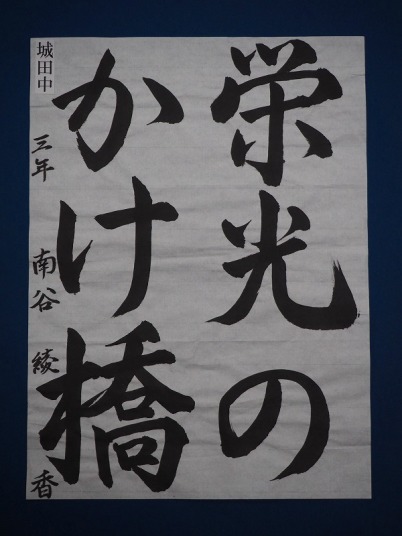 栄光の
かけ橋
城田中 三年 南谷 綾香